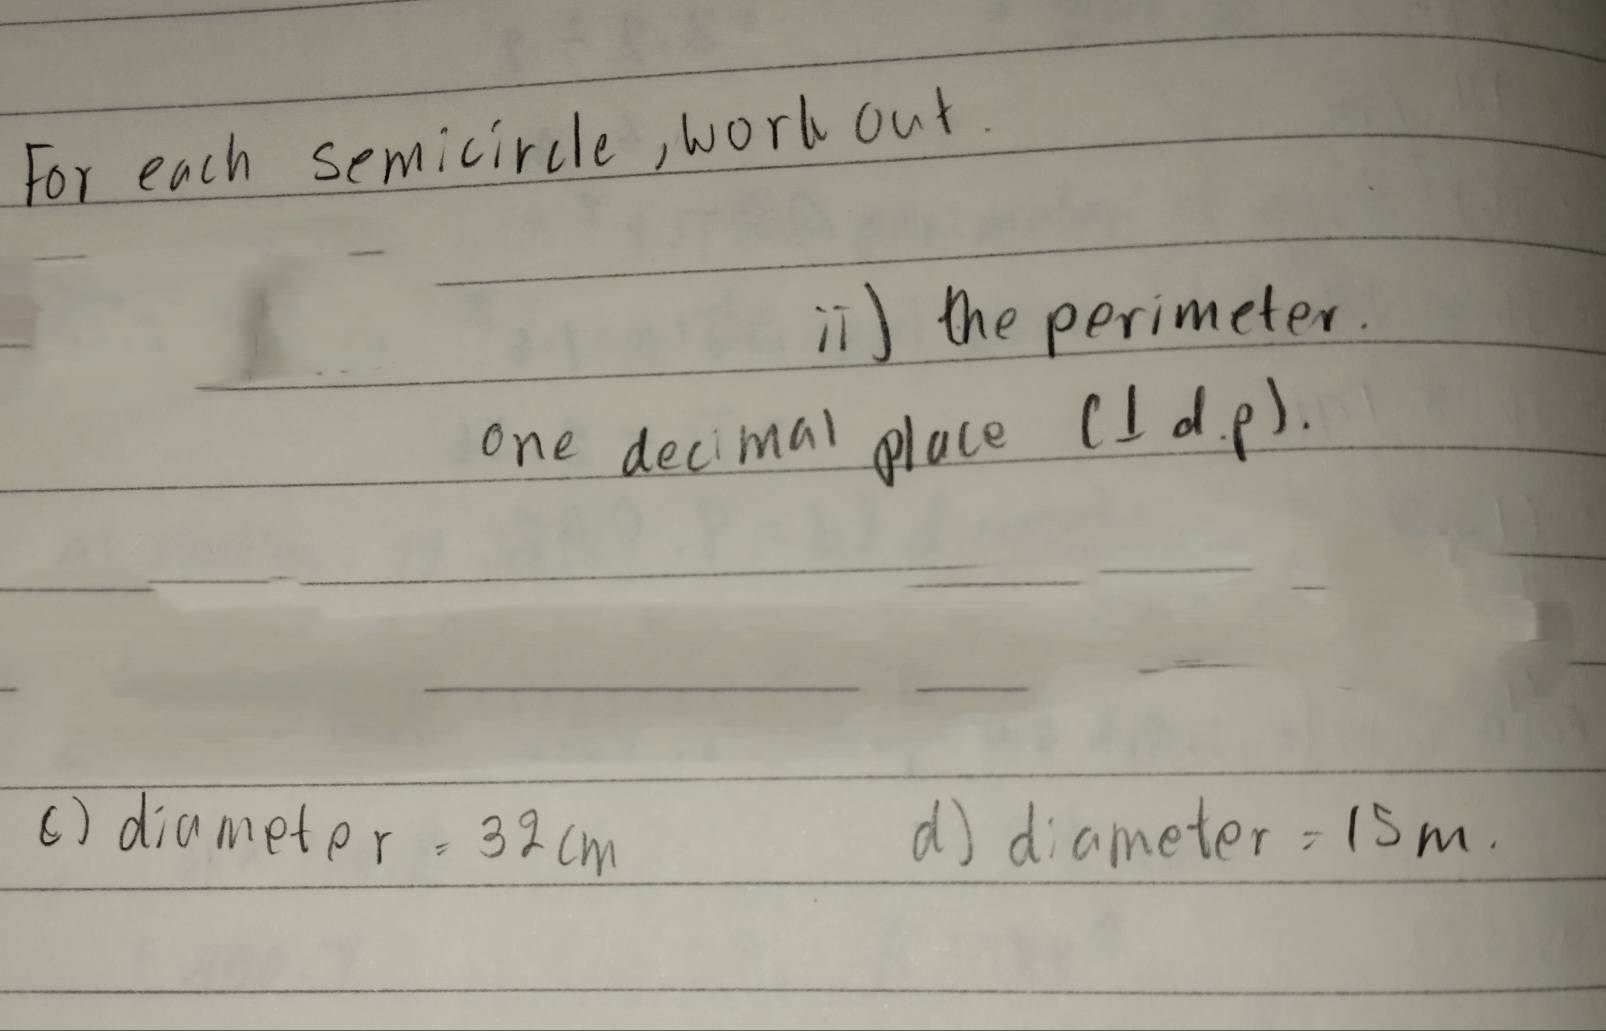 For each semicircle, work out.
ii) the perimeter.
one decimal place (1 d.p).
c) diameter = 32 cm
d) diameter = 15 m.